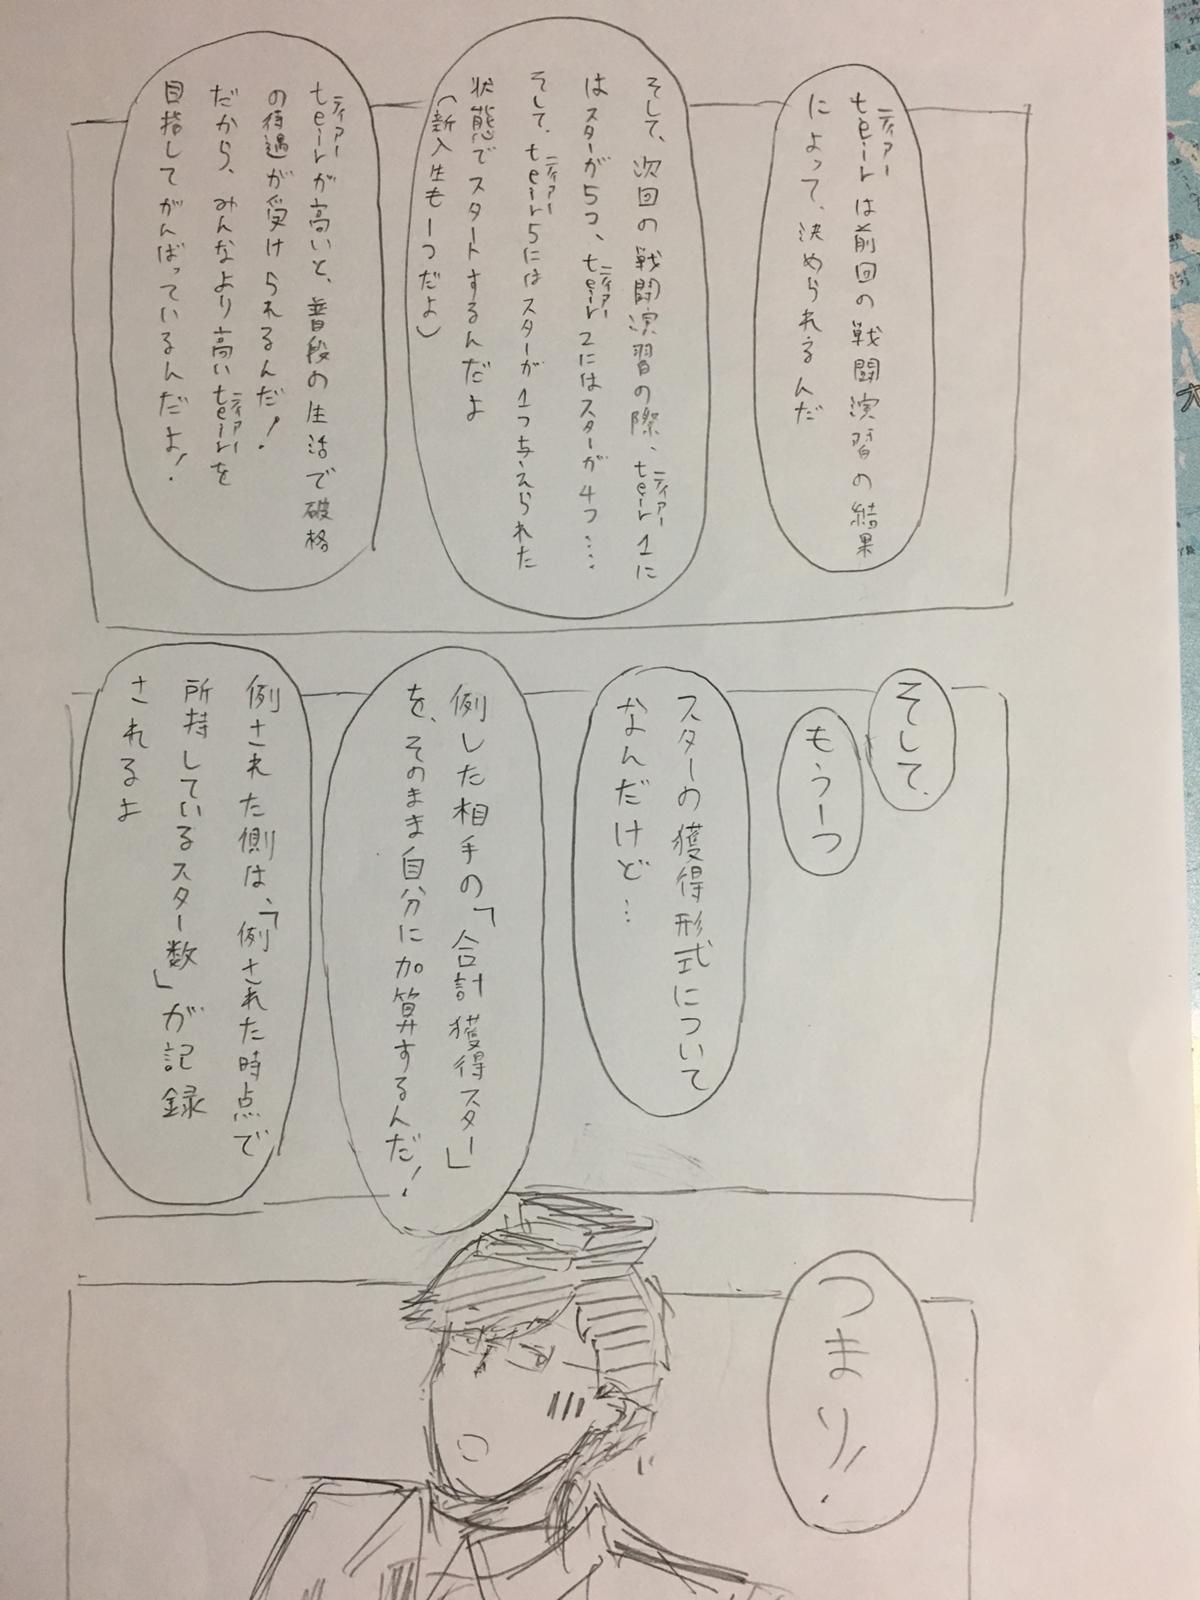 teirは前回の戦闘演習の結果
ティアー
によって、決められるんだ
そして、次回の戦闘演習の際、teir1に
ティアー
はスターが5つ、teir2にはスターが4つ……
ティアー
そして、teir5にはスターが1つ与えられた
ティアー
状態でスタートするんだよ
(新入生も一つだよ)
teirが高いと、普段の生活で破格
ティアー
の待遇が受けられるんだ!
だから、みんなより高いteirを
ティアー
目指してがんばっているんだよ!
そして、
もう一つ
スターの獲得形式について
なんだけど…
例した相手の「合計獲得スター」
を、そのまま自分に加算するんだ!
例された側は、「例された時点で
所持しているスター数」が記録
されるよ
つまり!